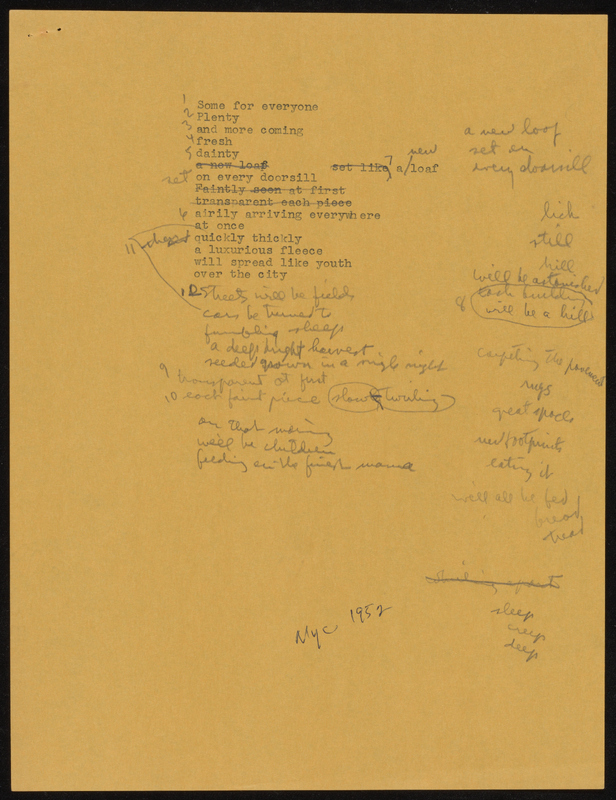 1 Some for everyone
2 Plenty
3 and more coming
4 fresh
5 dainty
a new loaf set like a new loaf
set on every doorsill
Faintly seen at first
transparent each piece
6 airily arriving everywhere
at once
quickly thickly
a luxurious fleece
will spread like youth
over the city
11
12 Streets will be fields
cars be turned to
fumbling sheep
a deep bright harvest
seeded grown in a single night
9 transparent at first
10 each faint piece slowly twirling
on that morning
we'll be children
feeding on the finest manna
a new loaf
set on
every doorsill
lick
still
hill
will be astonished
each building
8 will be a hill
carpeting the
rugs
great spools
new footprints
eating it
will all be fed
bread
tread
sleep
creep
deep
NYC 1952